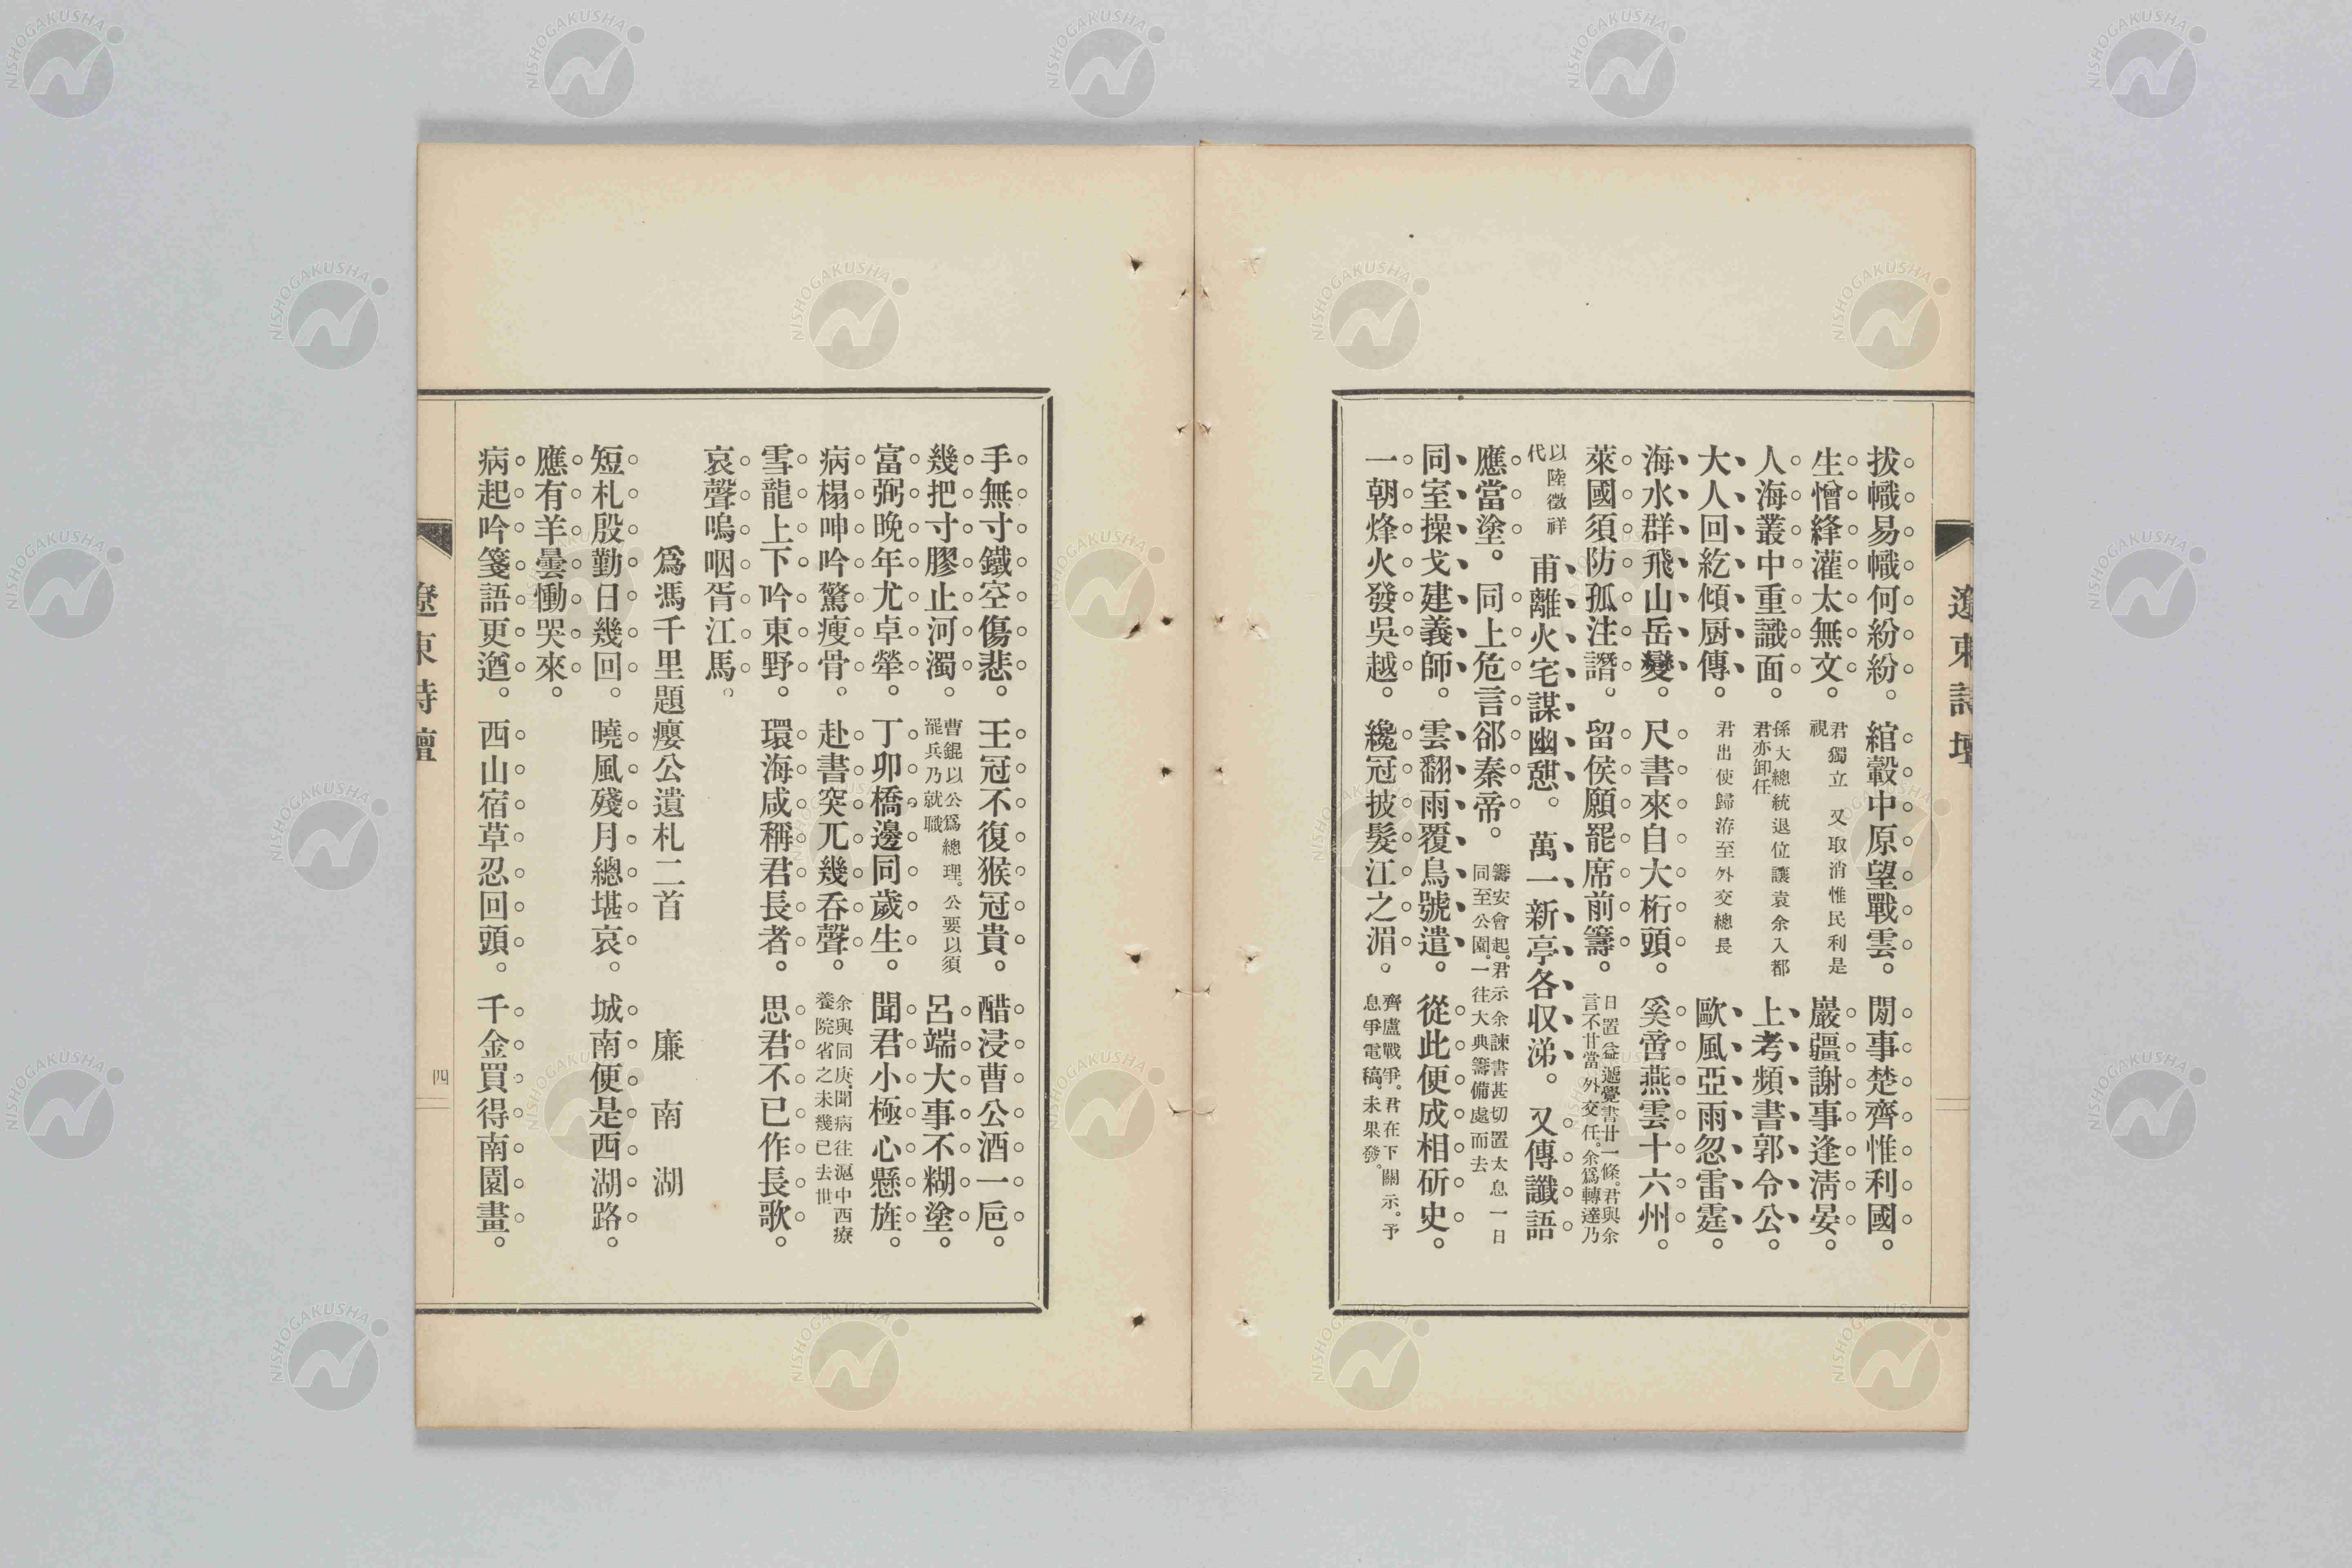 遼東詩壇
拔幟易幟何紛紛。綰轂中原望戰雲。閱事楚齊惟利國。
生憎絳灌太無文。君獨立又取消惟民利是視 巖疆謝事逢淸晏。
人海叢中重識面。孫大總統退位讓袁余入都君亦卸任 上考頻書郭令公。
大人回紇傾厨傳。君出使歸洊至外交總長 歐風亞雨忽雷霆。
海水群飛山岳變。尺書來自大桁頭。奚啻燕雲十六州。
萊國須防孤注譖。留侯願罷席前籌。日置益遞覺書廿一條。君與余言不甘當外交任。余爲轉達乃
以陸徵祥代 甫離火宅謀幽憇。萬一新亭各収涕。又傳讖語
應當塗。同上危言郤秦帝。籌安會起。君示余諫書甚切置太息一日同至公園。一往大典籌備處而去
同室操戈建義師。雲翻雨覆鳥號遣。從此便成相斫史。
一朝烽火發吳越。纔冠披髮江之湄。齊盧戰爭。君在下關示。予息爭電稿。未果發。
手無寸鐵空傷悲。王冠不復猴冠貴。醋浸曹公酒一卮。
幾把寸膠止河濁。曹錕以公爲總理。公要以須罷兵乃就職 呂端大事不糊塗。
富弼晩年尤卓犖。丁卯橋邊同歲生。聞君小極心懸旌。
病榻呻吟驚瘦骨。赴書突兀幾呑聲。余與同庚。聞病往滬中西療養院省之未幾已去世
雪龍上下吟東野。環海咸稱君長者。思君不已作長歌。
哀聲嗚咽胥江馬。
爲馮千里題癭公遺札二首 廉南湖
短札殷勤日幾回。曉風殘月總堪哀。城南便是西湖路。
應有羊曇慟哭來。
病起吟箋語更遒。西山宿草忍回頭。千金買得南園畫。
遼東詩壇
四
NISHOGAKUSHA